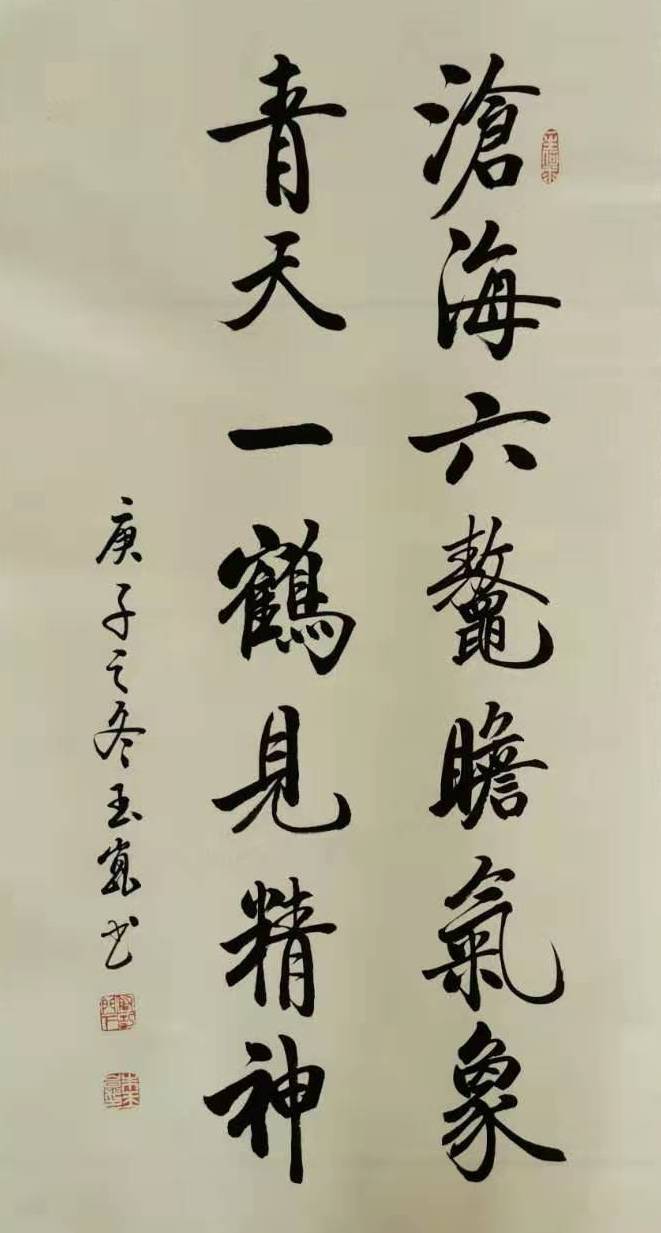 滄海六鰲瞻氣象
青天一鶴見精神
庚子之冬玉嵬书